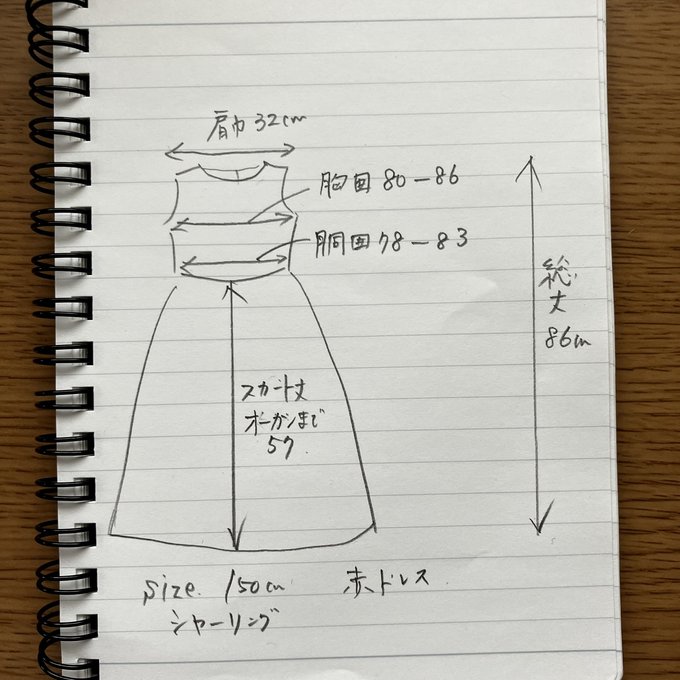 肩巾 32cm
胸囲 80-86
胴囲 78-83
総丈
86cm
スカート丈
オーガンまで
57
size. 150cm
赤ドレス
シャーリング